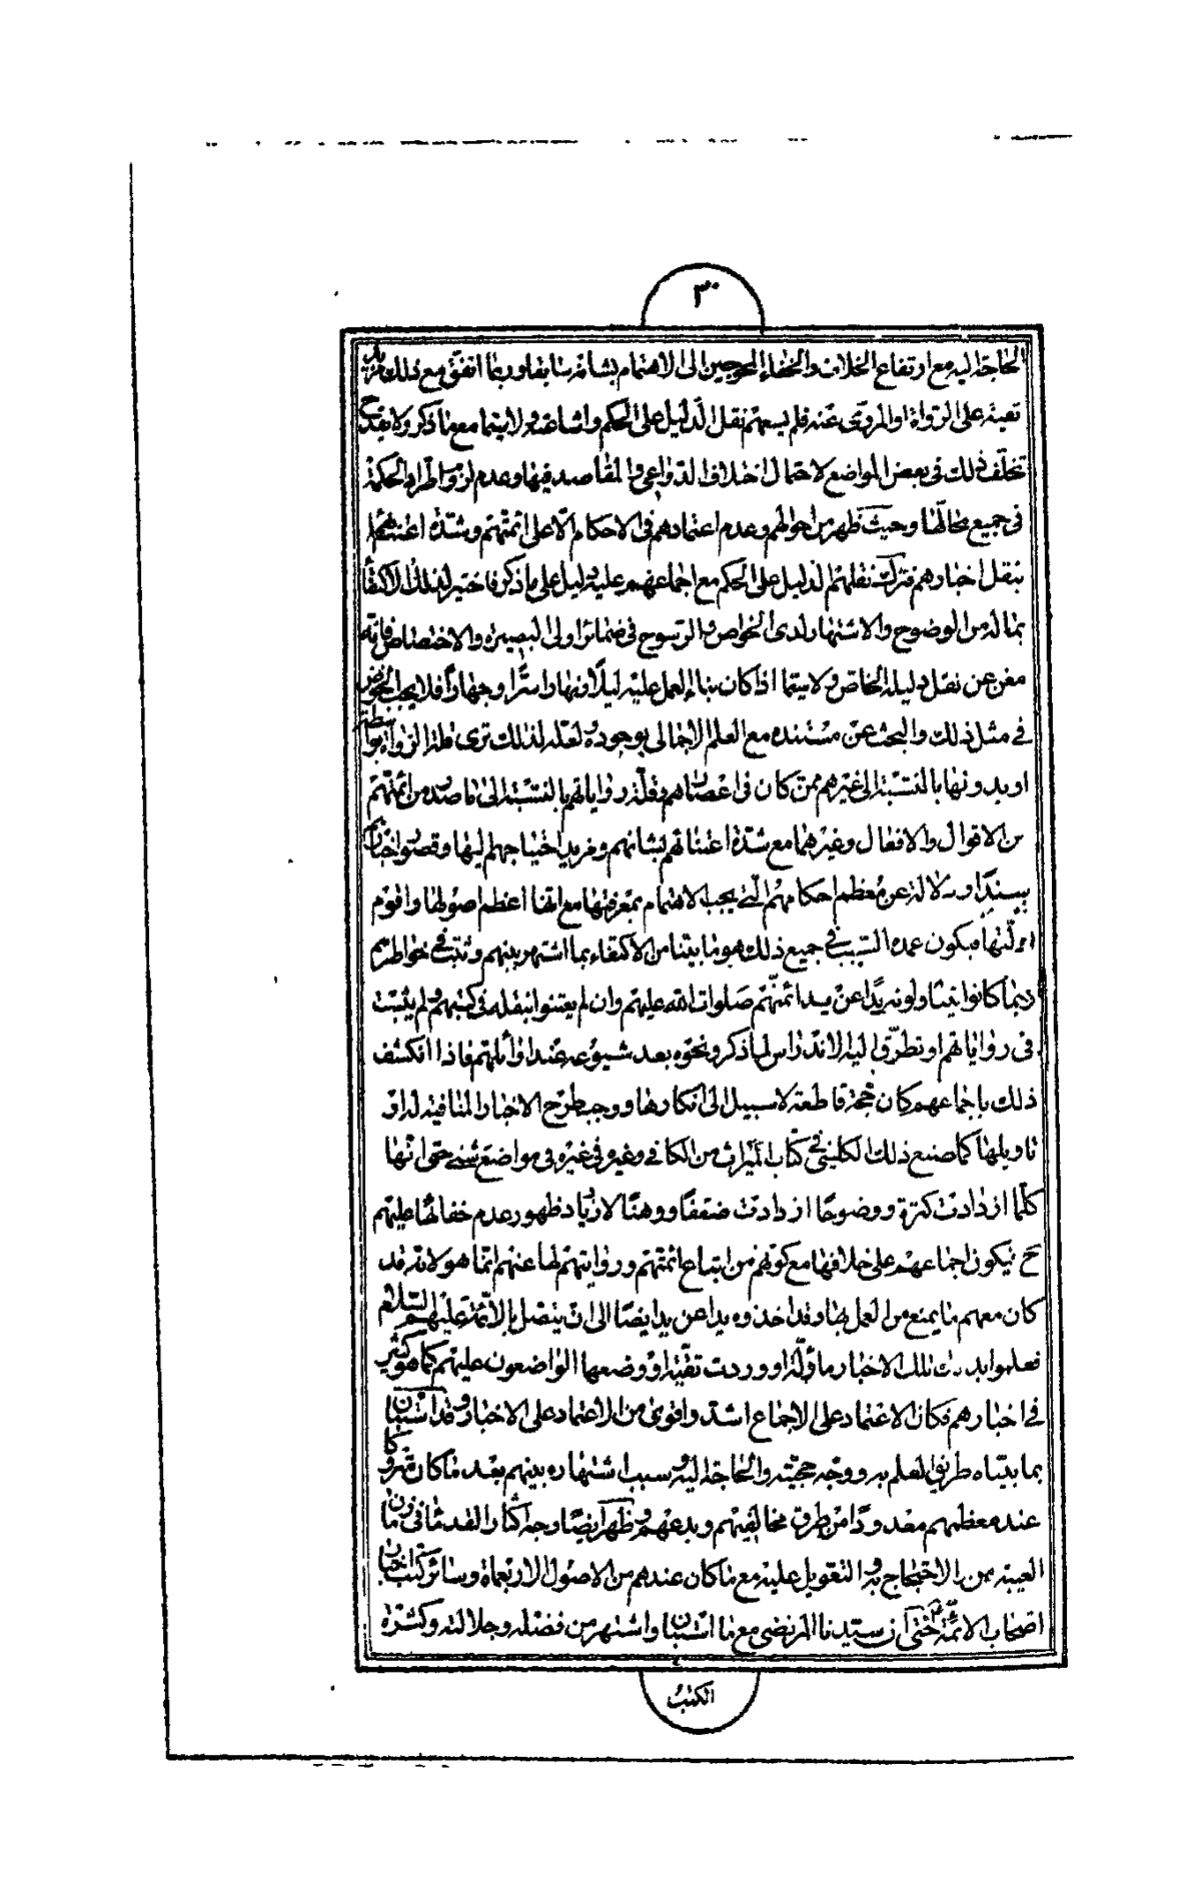 ٣٠
الحاجة اليه مع ارتفاع الخلاف والخفاء المحوجين الى الاهتمام بشانه سابقا وربما اتفق مع ذلك مزيد
تقية على الرواة او المروي عنه فلم يسعهم نقل الدليل على الحكم واشاعته ولا سيما مع ما ذكر ولا يقدح
تخلف ذلك في بعض المواضع لاحتمال اختلاف الدواعي والمقاصد فيها وعدم لزوم اطراد الحكمة
في جميع محالها وحيث ظهر من احوالهم وعدم اعتمادهم في الاحكام الا على ائمتهم وشدة اعتنائهم
بنقل اخبارهم فترك نقلهم لدليل على الحكم مع اجماعهم عليه دليل على ما ذكر فاختير لذلك الاكتفاء
بماله من الوضوح والاشتهار لدى الخواص والرسوخ في ضمائر اولى البصيرة والاختصاص فانه
مغن عن نقل دليله الخاص ولا سيما اذا كان بناء العمل عليه ليلا ونهارا وسرا وجهارا فلا يجب الخوض
في مثل ذلك والبحث عن مستنده مع العلم الاجمالي بوجوده ولعله لذلك ترى قلة الرواة بواسطة
او بدونها بالنسبة الى غيرهم ممن كان في اعصارهم وقلة رواياتهم بالنسبة الى ما صدر من ائمتهم
من الاقوال والافعال وغيرهما مع شدة اعتنائهم بشانهم ومزيد احتياجهم اليها وقصور اخبارهم
بسند او دلالة عن معظم احكامهم التي يجب الاهتمام بمعرفتها مع انها اعظم اصولها واقوم
ادلتها فيكون عمدة السبب في جميع ذلك هو ما بينا من الاكتفاء بما اشتهر بينهم وثبت في خواطرهم
ربما كانوا يتناولونه يدا عن يد ائمتهم صلوات الله عليهم وان لم يعتنوا بنقله في كتبهم ولم يثبت
في رواياتهم او تطرق اليه الاندراس لما ذكر ونحوه بعد شيوعه عند اوائلهم فاذا انكشف
ذلك باجماعهم كان حجة قاطعة لا سبيل الى انكارها ووجب طرح الاخبار المنافية له او
تاويلها كما صنع ذلك الكليني في كتاب الميراث من الكافي وغيره في غيره في مواضع شتى حتى انها
كلما ازدادت كثرة ووضوحا ازدادت ضعفا ووهنا لازدياد ظهور عدم خفائها عليهم
ح فيكون اجماعهم على خلافها مع كونهم من اتباع ائمتهم وروايتهم لها عنهم انما هو لانه قد
كان معهم ما يمنع من العمل بها وقد اخذوه يدا عن يد ايضا الى ان يتصل بالائمة عليهم السلام
فعلموا بذلك ان تلك الاخبار مأولة او وردت تقية او وضعها الواضعون عليهم كما هو كثير
في اخبارهم فكان الاعتماد على الاجماع اشد واقوى من الاعتماد على الاخبار وقد استبان
بما بيناه طريق العلم به ووجه حجيته والحاجة اليه وسبب اشتهاره بينهم بعد ما كان متروكا
عند معظمهم معدودا من طرق مخالفيهم وبدعهم وظهر ايضا وجه اكثار القدماء في زمان
الغيبة من الاحتجاج به والتعويل عليه مع ما كان عندهم من الاصول الاربعماة وسائر كتب اخبار
اصحاب الائمة ع حتى ان سيدنا المرتضى مع ما استبان واشتهر من فضله وجلالته وكثرة
الكتب